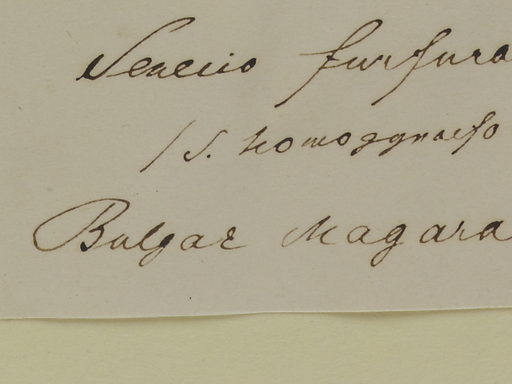 Senecio furfura
/S. homogynaefo
Bulgar Magara